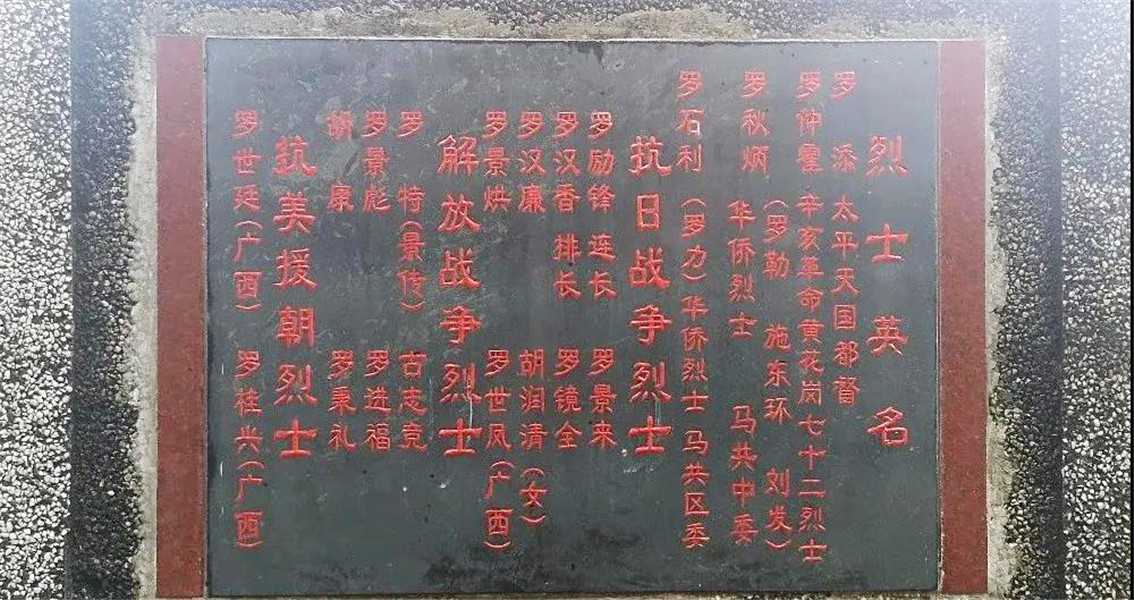 烈士英名
罗添 太平天国都督
罗仲霍 辛亥革命黄花岗七十二烈士
(罗勒 施东环 刘发)
罗秋炳 华侨烈士 马共中委
罗石利(罗力)华侨烈士马共区委
抗日战争烈士
罗励锋 连长 罗景来
罗汉香 排长 罗镜全
罗汉廉 胡润清(女)
罗景烘 罗世凤(广西)
解放战争烈士
罗特(景传) 古志克
罗景彪 罗进福
胡康 罗秉礼
抗美援朝烈士
罗世廷(广西) 罗桂兴(广西)